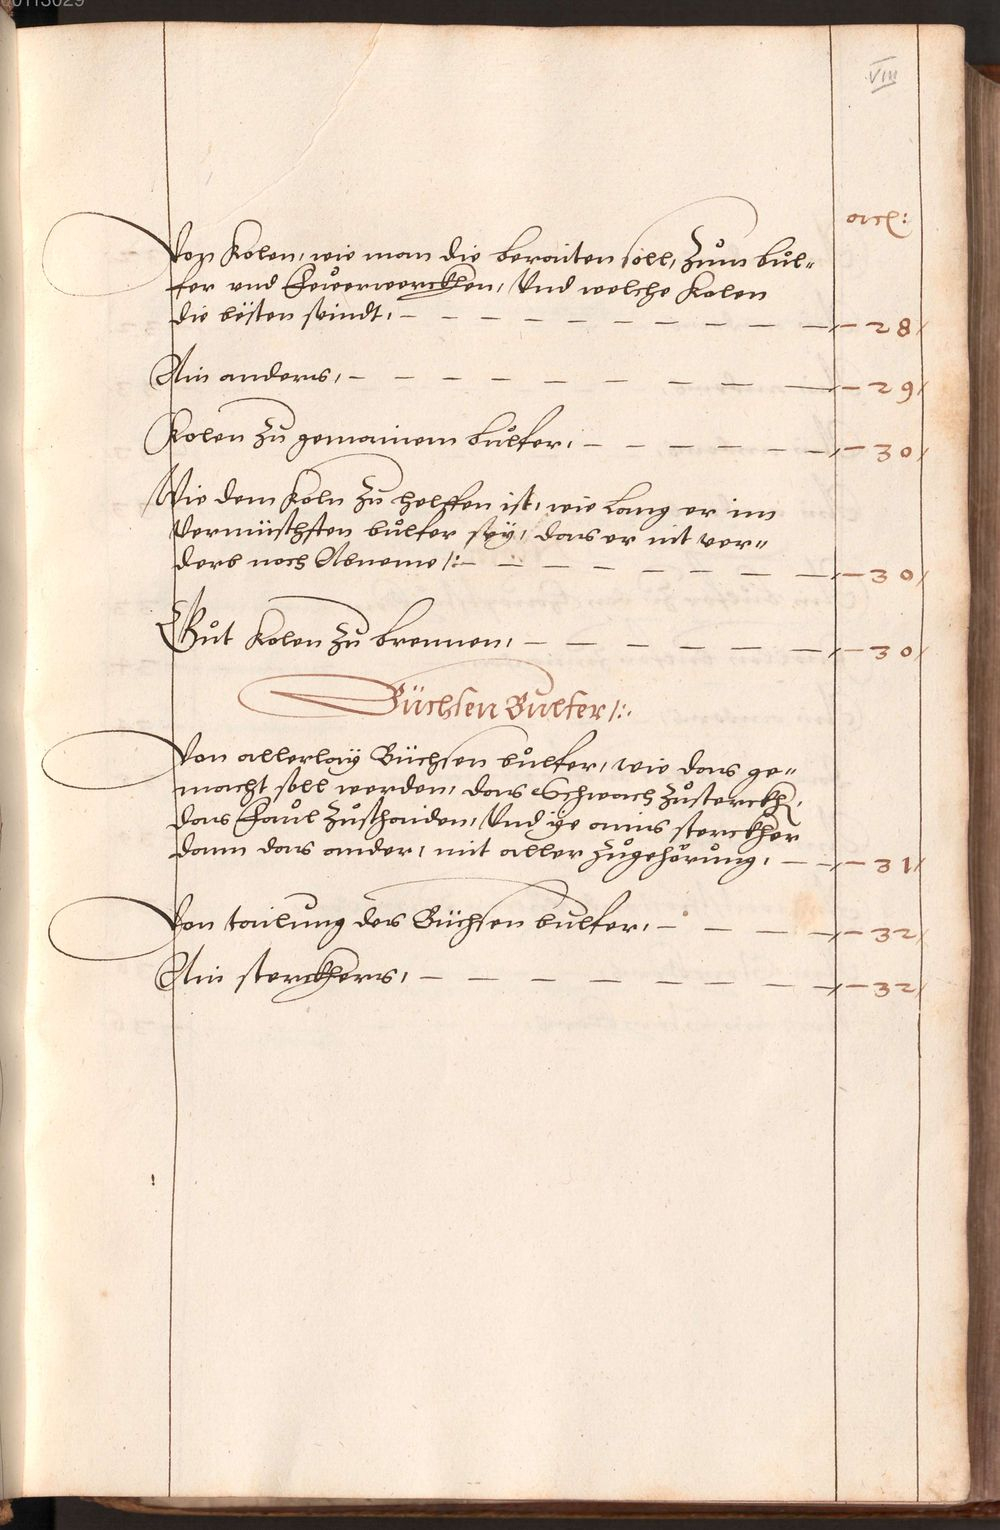 00113029
VIII
arck:
Von Kolen, wie man die beraiten soll, Zum bul-
fer vnd Feuerwerckhen, Vnd welche Kolen
die bësten seindt, 28
Ain anders, 29
Kolen Zu gemainem bulfer, 30
Wie dem Koln Zu helffen ist, wie Lang er im
Vermüschten bulfer seÿ, das er nit ver-
derb noch Abneme /: 30
Gut Kolen Zu brennen, 30
Büchsen Bulfer /:
Von allerlaÿ Büchsen bulfer, wie das ge-
macht soll werden, das Schwach Zusterckhen,
das Faul Zuschaiden, Vnd ye ains sterckher
dann das ander, mit aller Zugehörung, 31
Von tailung des Büchsen bulfer, 32
Ain sterckhers, 32